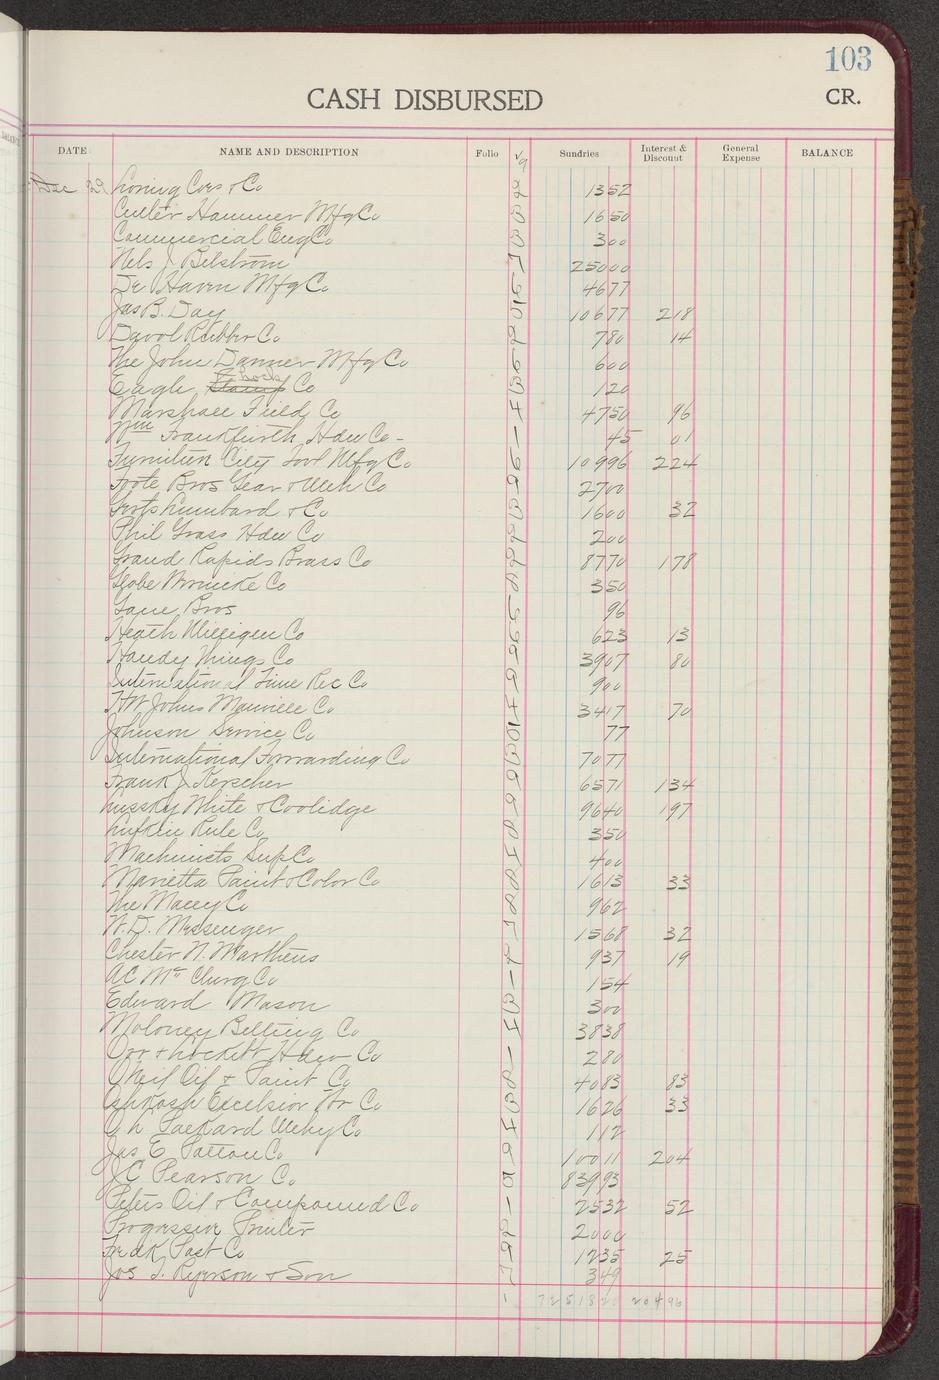 103
CASH DISBURSED
CR.
DATE NAME AND DESCRIPTION Folio Sundries Interest & Discount General Expense BALANCE
Dec 29 Loring Coes & Co 1352
Cutler Hammer Mfg Co 1650
Commercial Eng Co 300
Nels J. Belstrom 25000
De Haven Mfg Co 4677
Jas B. Day 10677 218
Davol Rubber Co 780 14
The John Danner Mfg Co 600
Eagle Lock Co 120
Marshall Field Co 4750 96
Wm Frankfurth Hdw Co - 45 01
Furniture City Tool Mfg Co 10996 224
Foote Bros Gear & Mch Co 2700
& Co 1600 32
Phil Gross Hdw Co 200
Grand Rapids Brass Co 8770 178
Globe Wernicke Co 350
Lane Bros 96
Heath Milligen Co 623 13
Handy Things Co 3907 80
International Time Rec Co 900
HW Johns Manville Co 3417 70
Johnson Service Co 77
International Forwarding Co 7077
Frank J. Kerscher 6571 134
Lussky White & Coolidge 9640 197
Lufkin Rule Co 350
Machinists Sup Co 400
Marietta Paint & Color Co 1613 33
The Macey Co 962
W. D. Messenger 1568 32
Chester N. Marthens 937 19
AC Mc Clurg Co 154
Edward Mason 300
Moloney Belting Co 3838
Orr & Lockett Hdw Co 280
ONeil Oil & Paint Co 4083 83
Oshkosh Excelsior Co 1626 33
Packard Mchy Co 112
Jas E. Patton Co 10011 204
JC Pearson Co 83993
Peters Oil & Compound Co 2532 52
Progressive Printer 2000
Fredk Post Co 1235 25
Jos T. Ryerson & Son 349